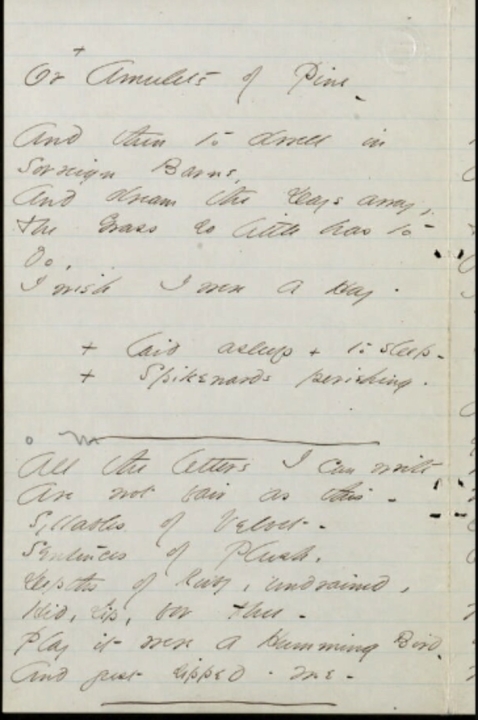 +
Or Amulets of Pine -
And then to dwell in
Sovreign Barns,
And dream the Days away,
The Grass so little has to
do,
I wish I were a Hay -
+ laid asleep + to sleep -
+ Spikenards perishing -
All the letters I can write
Are not fair as this -
Syllables of Velvet -
Sentences of Plush,
Depths of Ruby, undrained,
Hid, Lip, for Thee -
Play it were a Humming Bird,
And just sipped - me -